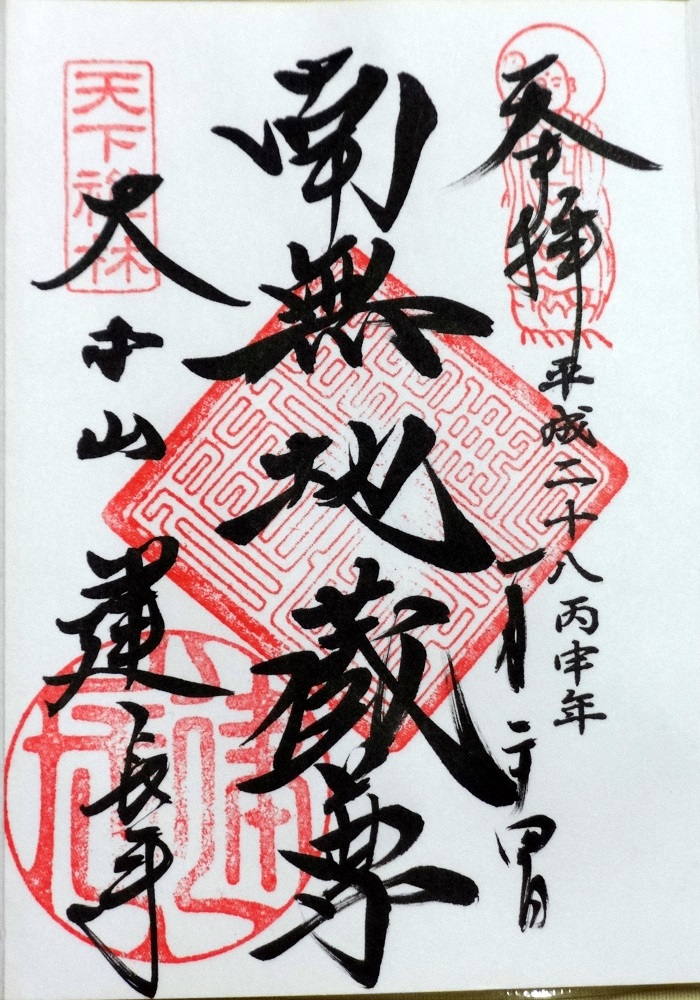 奉拝
平成二十八丙申年
一月二十四日
南無地蔵尊
天下禅林
大本山
建長寺